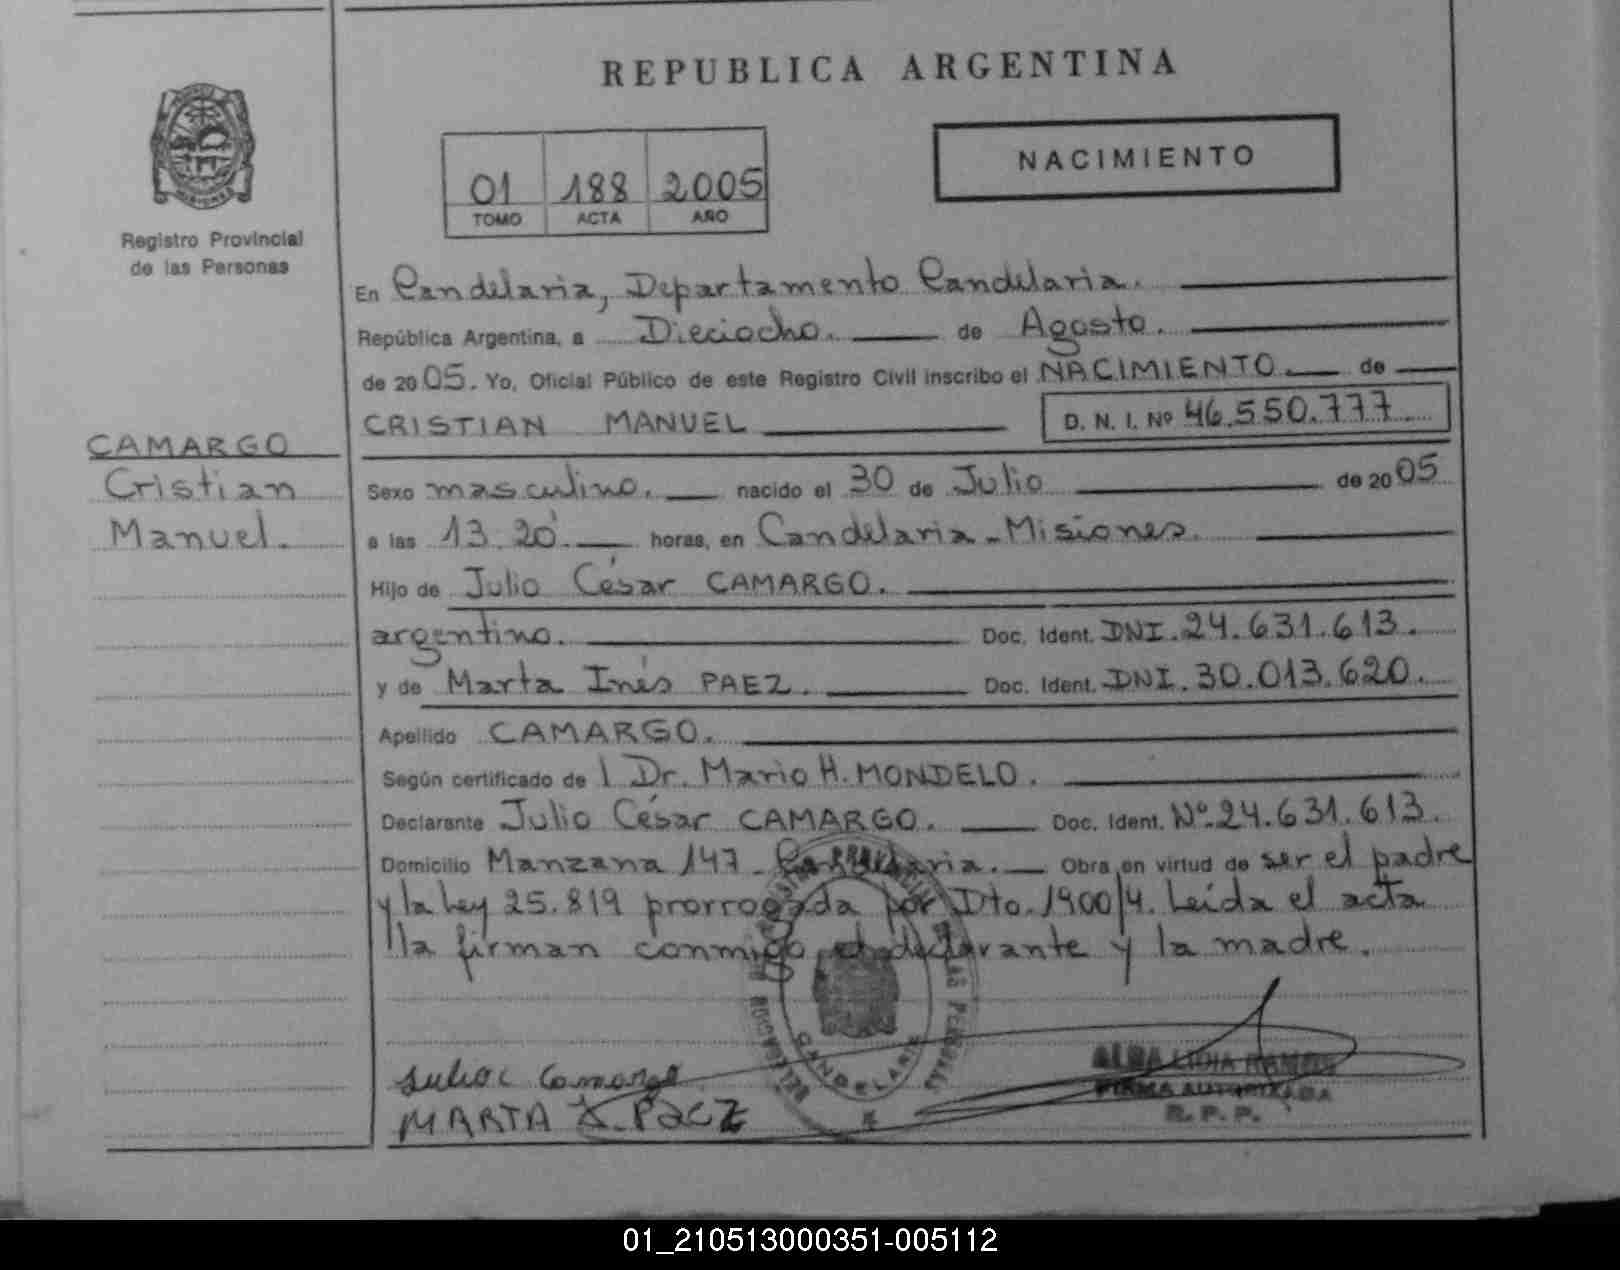 REPUBLICA ARGENTINA
NACIMIENTO
01 188 2005
TOMO ACTA AÑO
Registro Provincial
de las Personas
En Candelaria, Departamento Candelaria.
República Argentina, a Dieciocho. de Agosto.
de 2005. Yo, Oficial Público de este Registro Civil inscribo el NACIMIENTO. de
CRISTIAN MANUEL D. N. I. Nº 46.550.777
CAMARGO
Cristian
Manuel.
Sexo masculino. nacido el 30 de Julio de 2005
a las 13.20' horas, en Candelaria - Misiones.
Hijo de Julio César CAMARGO.
argentino. Doc. Ident. DNI. 24.631.613.
y de Marta Inés PAEZ. Doc. Ident. DNI. 30.013.620.
Apellido CAMARGO.
Según certificado de l Dr. Mario H. MONDELO.
Declarante Julio César CAMARGO. Doc. Ident. Nº 24.631.613.
Domicilio Manzana 147 - Candelaria. Obra en virtud de ser el padre
y la Ley 25.819 prorrogada por Dto. 1900/4. Leída el acta
la firman conmigo el declarante y la madre.
Julio C Camargo
MARTA I. Paez
CANDELARIA
ALBA LIDIA RAMOS
FIRMA AUTORIZADA
R. P. P.
01_210513000351-005112